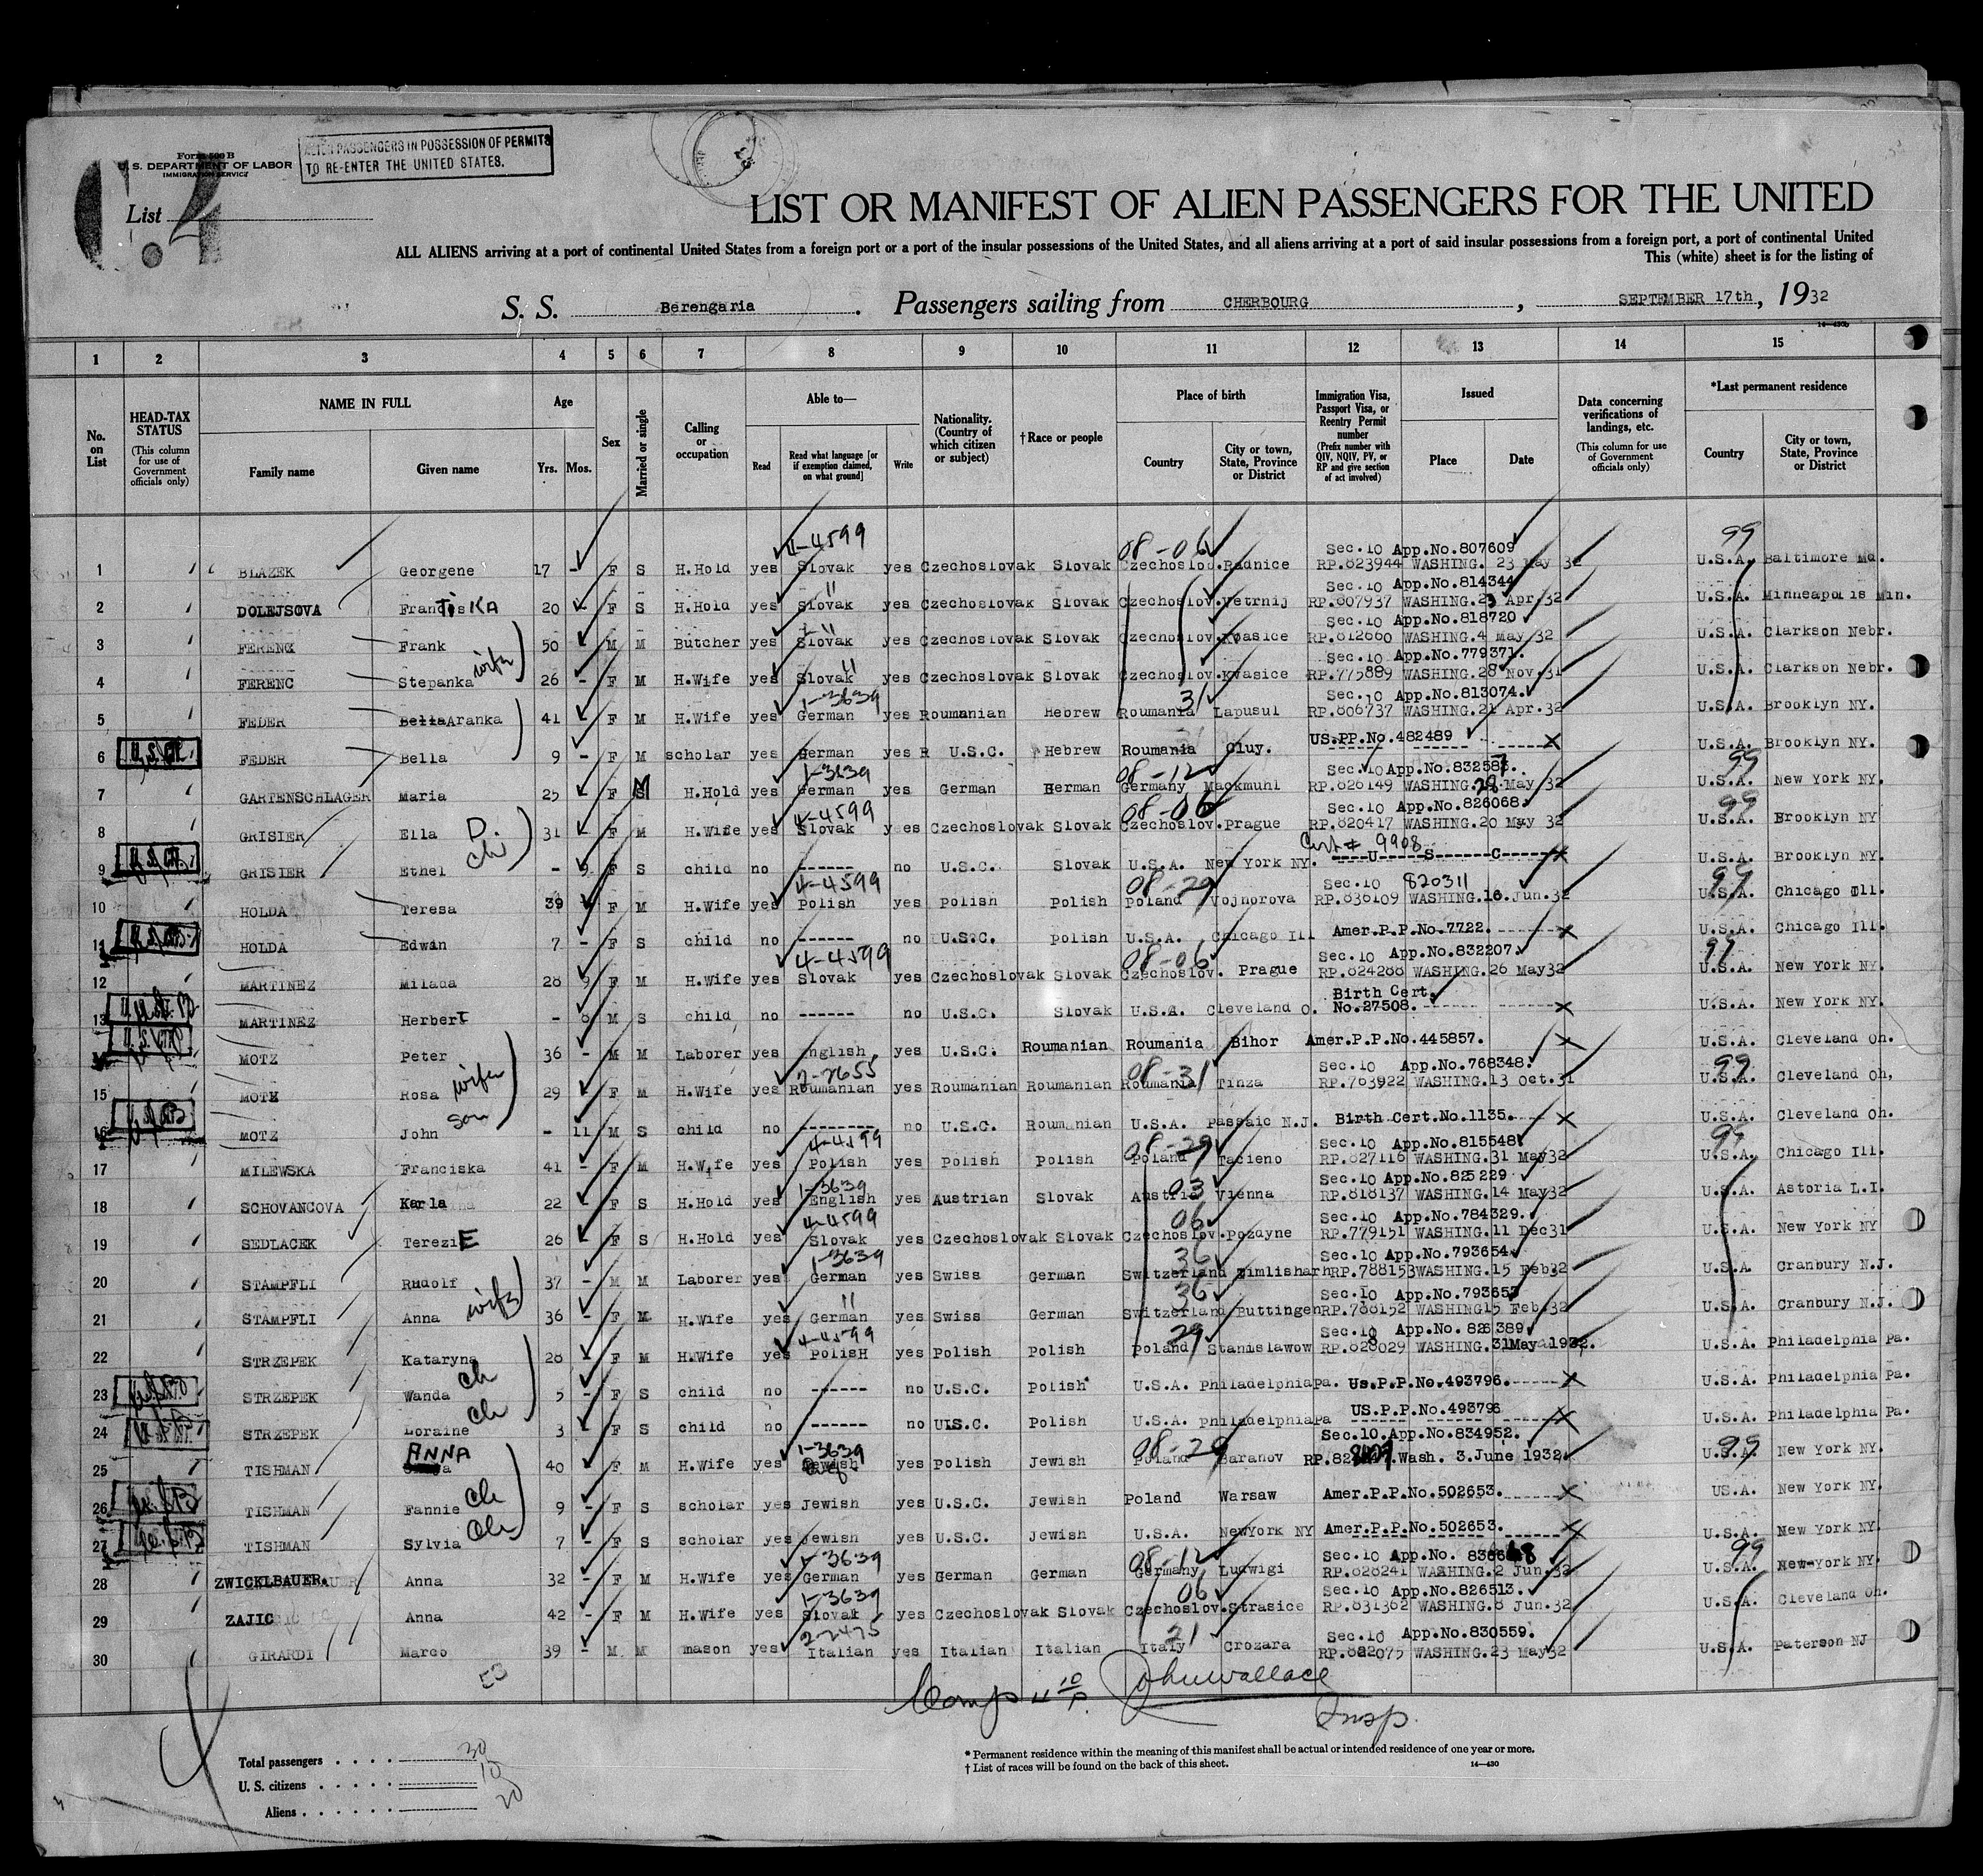 Form 500 B
U. S. DEPARTMENT OF LABOR
IMMIGRATION SERVICE
ALIEN PASSENGERS IN POSSESSION OF PERMITS
TO RE-ENTER THE UNITED STATES.
List 4
LIST OR MANIFEST OF ALIEN PASSENGERS FOR THE UNITED
ALL ALIENS arriving at a port of continental United States from a foreign port or a port of the insular possessions of the United States, and all aliens arriving at a port of said insular possessions from a foreign port, a port of continental United
This (white) sheet is for the listing of
S. S. Berengaria. Passengers sailing from CHERBOURG, SEPTEMBER 17th, 1932
1 2 3 4 5 6 7 8 9 10 11 12 13 14 15
No. on List
HEAD-TAX STATUS (This column for use of Government officials only)
NAME IN FULL Family name Given name
Age Yrs. Mos.
Sex
Married or single
Calling or occupation
Able to— Read Read what language [or if exemption claimed, on what ground] Write
Nationality. (Country of which citizen or subject)
†Race or people
Place of birth Country City or town, State, Province or District
Immigration Visa, Passport Visa, or Reentry Permit number (Prefix number with QIV, NQIV, PV, or RP and give section of act involved)
Issued Place Date
Data concerning verifications of landings, etc. (This column for use of Government officials only)
*Last permanent residence Country City or town, State, Province or District
4-4599 08-06 Sec.10 App.No.807609 99
1 BLAZEK Georgene 17 - F S H.Hold yes Slovak yes Czechoslovak Slovak Czechoslov. Radnice RP.823944 WASHING. 23 May 32 U.S.A. Baltimore Md.
" Sec.10 App.No.814344
2 DOLEJSOVA FrancTisKA 20 - F S H.Hold yes Slovak yes Czechoslovak Slovak Czechoslov. Vetrnij RP.807937 WASHING.23 Apr/32 U.S.A. Minneapolis Min.
" Sec.10 App.No.818720
3 FERENC Frank 50 - M M Butcher yes Slovak yes Czechoslovak Slovak Czechoslov. Kvasice RP.812660 WASHING.4 May 32 U.S.A. Clarkson Nebr.
wife " Sec.10 App.No.779371.
4 FERENC Stepanka 26 - F M H.Wife yes Slovak yes Czechoslovak Slovak Czechoslov. Kvasice RP.775889 WASHING.28 Nov.31 U.S.A. Clarkson Nebr.
1-3639 31 Sec.10 App.No.813074.
5 FEDER Bella Aranka 41 - F M H.Wife yes German yes Roumanian Hebrew Roumania Lapusul RP.806737 WASHING.21 Apr.32 U.S.A. Brooklyn NY.
US.PP.No.482489 ------X
6 FEDER Bella 9 - F M scholar yes German yes R U.S.C. Hebrew Roumania Cluy. U.S.A. Brooklyn NY.
1-3639 08-12 Sec.10 App.No.832587. 99
7 GARTENSCHLAGER Maria 25 F M H.Hold yes German yes German German Germany Mackmuhl RP.826149 WASHING.28 May 32 U.S.A. New York NY.
4-4599 08-06 Sec.10 App.No.826068. 99
8 GRISIER Ella D. 31 F M H.Wife yes Slovak yes Czechoslovak Slovak Czechoslov. Prague RP.820417 WASHING.20 May 32 U.S.A. Brooklyn NY
ch Cert # 9908
9 GRISIER Ethel - 9 F S child no ------ no U.S.C. Slovak U.S.A. New York NY. ----U------S------C------X U.S.A. Brooklyn NY.
4-4599 08-29 Sec.10 820311 99
10 HOLDA Teresa 39 F M H.Wife yes Polish yes Polish Polish Poland Vojnorova RP.836109 WASHING.16.Jun.32 U.S.A. Chicago Ill.
11 HOLDA Edwin 7 - F S child no ------ no U.S.C. polish U.S.A. Chicago Ill Amer.P.P.No.7722. ------X U.S.A. Chicago Ill.
4-4599 08-06 Sec.10 App.No.832207. 99
12 MARTINEZ Milada 28 9 F M H.Wife yes Slovak yes Czechoslovak Slovak Czechoslov. Prague RP.824288 WASHING.26 May32 U.S.A. New York NY.
Birth Cert.
13 MARTINEZ HerberT - 8 M S child no ------ no U.S.C. Slovak U.S.A. Cleveland O. No.27508. ------X U.S.A. New York NY.
MOTZ Peter 36 - M M Laborer yes English yes U.S.C. Roumanian Roumania Bihor Amer.P.P.No.445857. X U.S.A. Cleveland Oh.
wife 2-2655 08-31 Sec.10 App.No.768348. 99
15 MOTZ Rosa 29 F M H.Wife yes Roumanian yes Roumanian Roumanian Roumania Tinza RP.763922 WASHING.13 Oct.31 U.S.A. Cleveland Oh.
son
16 MOTZ John - 11 M S child no -------- no U.S.C. Roumanian U.S.A. Passaic N.J. Birth Cert.No.1135. ----X U.S.A. Cleveland Oh.
4-4599 08-29 Sec.10 App.No.815548. 99
17 MILEWSKA Franciska 41 - F M H.Wife yes Polish yes Polish Polish Poland Tacieno RP.827116 WASHING.31 May32 U.S.A. Chicago Ill.
1-3639 03 Sec.10 App.No.825229
18 SCHOVANCOVA Karla 22 F S H.Hold yes English yes Austrian Slovak Austria Vienna RP.818137 WASHING.14 May32 U.S.A. Astoria L.I.
4-4599 06 Sec.10 App.No.784329.
19 SEDLACEK TereziE 26 F S H.Hold yes Slovak yes Czechoslovak Slovak Czechoslov. Pozdyne RP.779151 WASHING.11 Dec31 U.S.A. New York NY
1-3639 36 Sec.10 App.No.793654.
20 STAMPFLI Rudolf 37 - M M Laborer yes German yes Swiss German Switzerland Zimlisharh RP.788153 WASHING.15 Feb32 U.S.A Cranbury N.J.
wife " 36 Sec.10 App.No.793653
21 STAMPFLI Anna 36 - F M H.Wife yes German yes Swiss German Switzerland Buttingen RP.788152 WASHING15 Feb.32 U.S.A. Cranbury N.J.
4-4599 29 Sec.10 App.No.826389.
22 STRZEPEK Kataryna 28 - F M H.Wife yes PolisH yes Polish Polish Poland Stanislawow RP.828029 WASHING.31May 1932. U.S.A. Philadelphia Pa.
23 STRZEPEK Wanda ch 5 - F S child no ------ no U.S.C. Polish U.S.A. PhiladelphiaPa. Us.P.P.No.493796. ------X U.S.A. Philadelphia Pa.
ch US.P.P.No.493796
24 STRZEPEK Loraine 3 F S child no ------ no U.S.C. Polish U.S.A. PhiladelphiaPa X U.S.A. Philadelphia Pa.
ANNA 1-3639 08-29 Sec.10.App.No.834952. 99
25 TISHMAN 40 F M H.Wife yes Jewish yes Polish Jewish Poland Baranov Wash. 3.June 1932. U.S.A. New York NY.
26 TISHMAN Fannie ch 9 - F S scholar yes Jewish yes U.S.C. Jewish Poland Warsaw Amer.P.P.No.502653. ------X US.A. New York NY.
27 TISHMAN Sylvia ch 7 - F S scholar yes Jewish yes U.S.C. Jewish U.S.A. NewYork NY Amer.P.P.No.502653. ------X U.S.A. New York NY.
1-3639 08-12 Sec.10 App.No. 99
28 ZWICKLBAUER Anna 32 - F M H.Wife yes German yes German German Germany Ludwigi RP.828241 WASHING.2 Jun.32 U.S.A. New-York NY.
1-3639 06 Sec.10 App.No.826513.
29 ZAJIC Anna 42 - F M H.Wife yes Slovak yes Czechoslovak Slovak Czechoslov. Strasice RP.831362 WASHING.8 Jun.32 U.S.A. Cleveland Oh.
2-2475 21 Sec.10 App.No.830559.
30 GIRARDI Marco 39 - M M mason yes Italian yes Italian Italian Italy Crozara RP.822075 WASHING.23 May32 U.S.A. Paterson NJ
53
Comp John Wallace
Insp.
Total passengers . . . . 30
U. S. citizens . . . . . 10
Aliens . . . . . . 20
* Permanent residence within the meaning of this manifest shall be actual or intended residence of one year or more.
† List of races will be found on the back of this sheet.
14—430